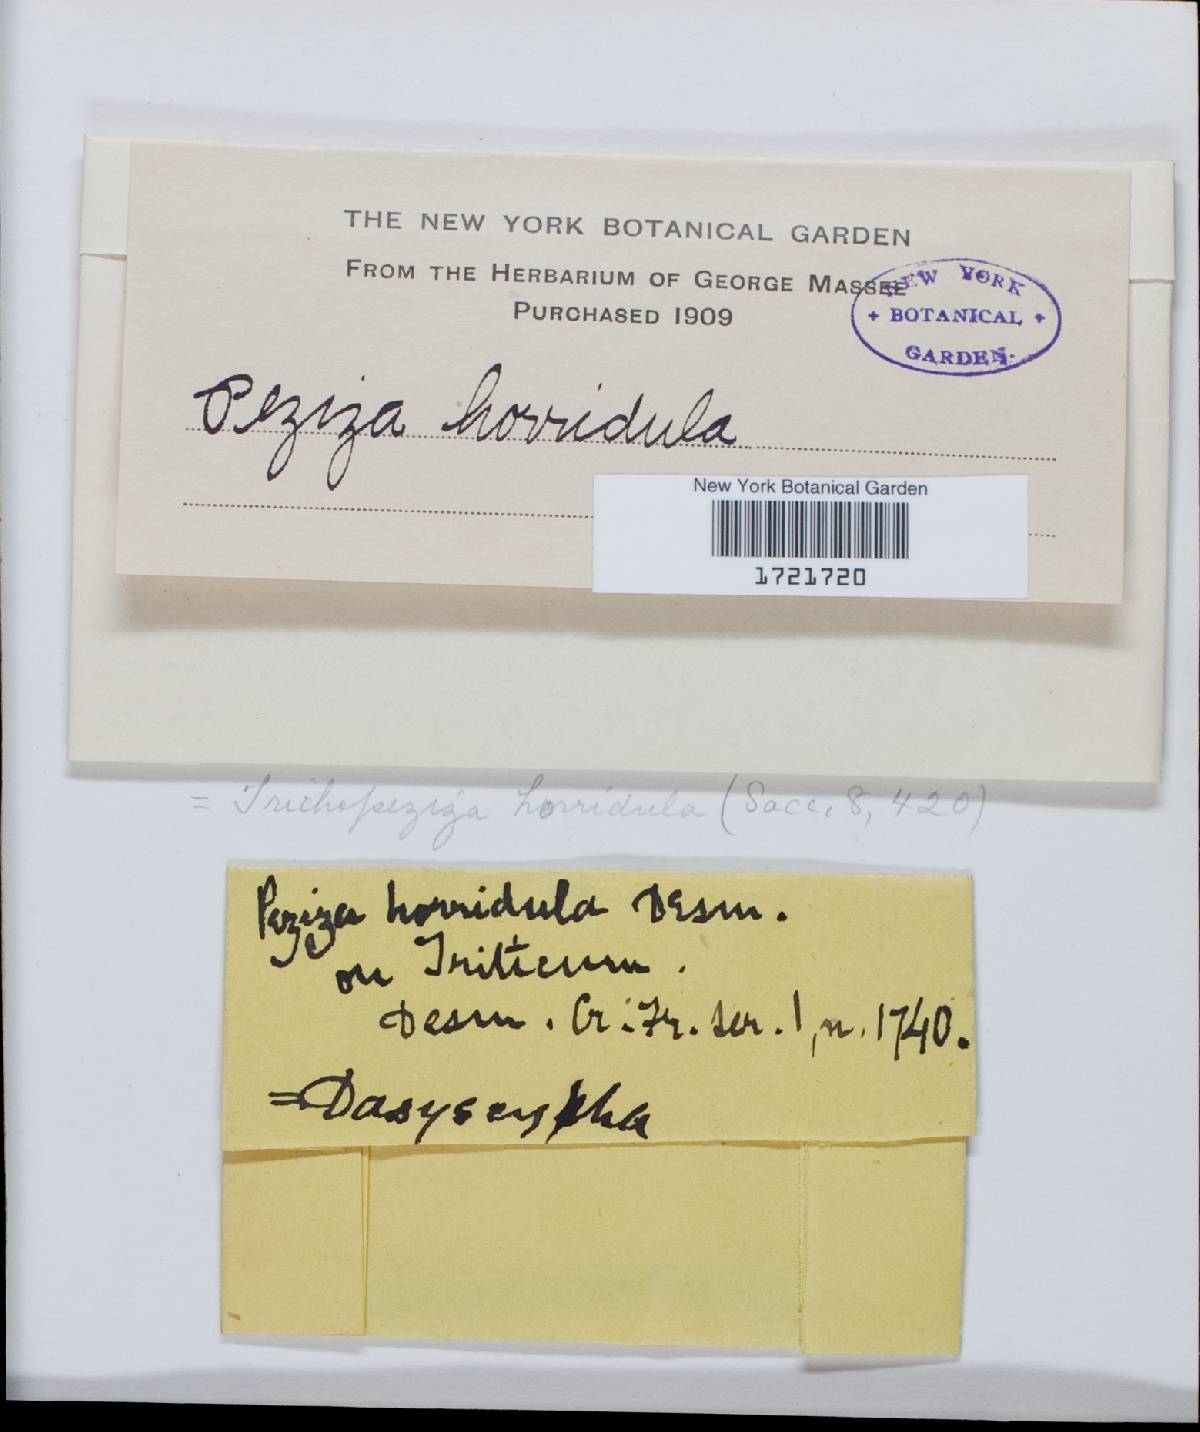 THE NEW YORK BOTANICAL GARDEN
FROM THE HERBARIUM OF GEORGE MASSEE
PURCHASED 1909
NEW YORK
+ BOTANICAL +
GARDEN.
Peziza horridula
New York Botanical Garden
1721720
= Trichopeziza horridula (Sacc. 8, 420)
Peziza horridula Desm.
on Triticum.
Desm. Cr. Fr. ser. 1, n. 1740.
= Dasyscypha